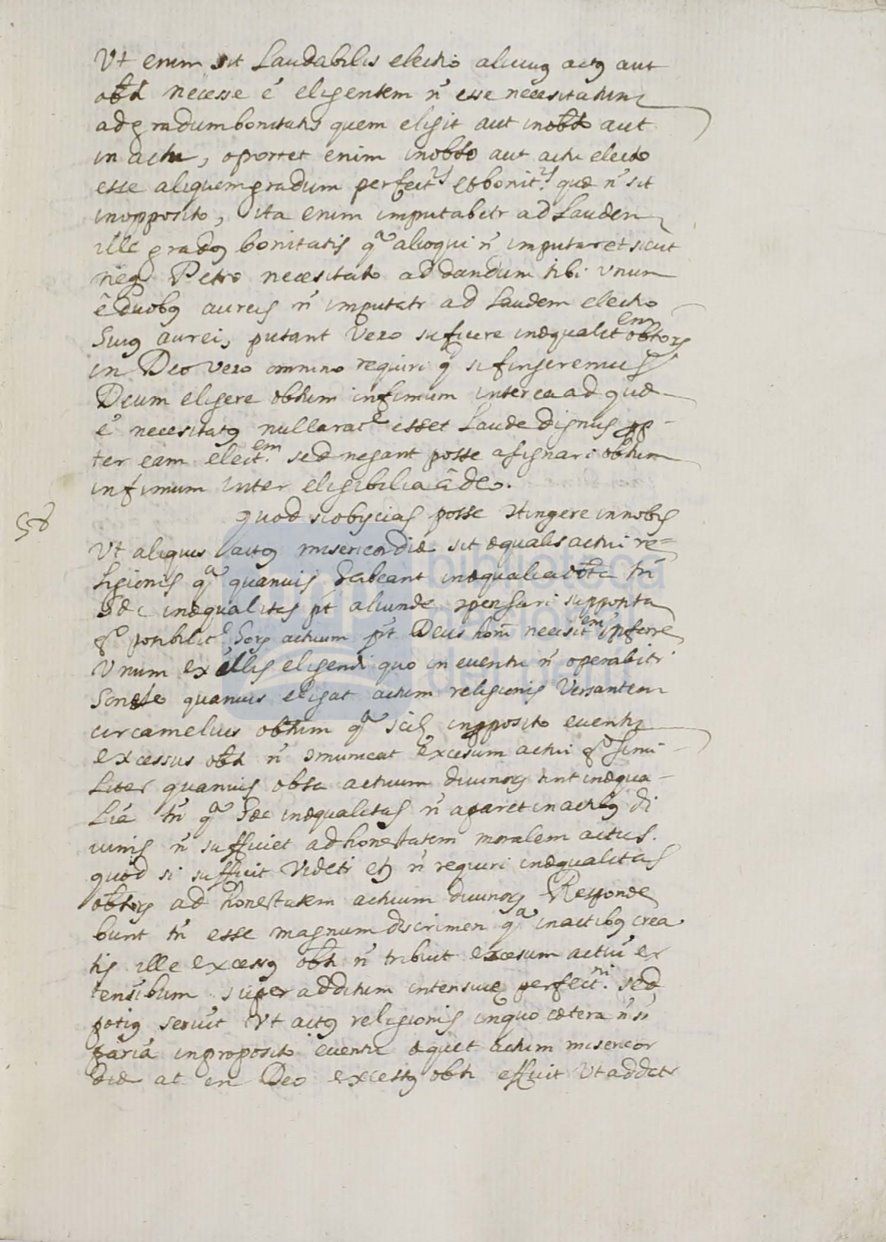 Ut enim sit Laudabilis electio alicuiꝯ actꝯ aut
obti necesse ē eligentem n̄ esse necessitatum
ad gradum bonitatis quem eligit aut in obto aut
in actu, oportet enim in obto aut actu electo
esse aliquem gradum perfect.ˢ et bonit.ˢ quæ n̄ sit
in opposito, ita enim imputabitr ad Lauden
ille gradꝯ bonitatis qᵃ alioqui n̄ imputaret sicut
neqꝫ Petro necesitato ad dandum tibi unum
ē duobꝯ aureis n̄ imputatr ad Laudem electio
huiꝯ aurei, putant vero suficere inæqualitᵉᵐ obtorꝫ
in Deo vero omnino requiri qᵃ si fingeremus
Deum eligere obtum infimum inter ea ad quæ
ē necesitatꝯ nulla ratᵉ esset Laude dignus pp-
ter eam elect.ᵉᵐ sed negant posse asignari obtum
infimum inter eligibilia ā deo.
quod si obiicias posse Ztingere in nobis
58
Ut aliquis actꝯ misericordiæ sit æqualis actui re=
ligionis qᵃ quanuis habeant inæqualia obta tn̄
hæc inæqualitas pt aliunde Zpensari supposita
possibilitᵉ horꝫ actuum pt Deus homī necesitᵉᵐ inferre
Unum ex illis eligendi quo in eventu n̄ operabitr
honeste quanuis eligat actum religionis versantem
circa melius obtum qᵃ scilꝫ in pposito eventu
excessus obti n̄ Zmunicat excesum actui simi-
Liter quanuis obta actuum divinorꝫ sint inæqua-
Lia tn̄ qᵃ hæc inæqualitas n̄ aparet in actibꝯ di
uinis n̄ sufficiet ad honestatem moralem actus.
quod si sufficit videtr etꝫ n̄ requiri inæqualitas
obtorꝫ ad honestatem actuum divinorꝫ Responde
bunt tn̄ esse magnum discrimen qᵃ in actibꝯ crea
tis ille excessꝯ obti n̄ tribuit excesum actui ex
tensibum super additum intensiuæ perfectⁿⁱ. sed
potiꝯ seruit ut actꝯ religionis in quo cætera n̄ st̄
paria in proposito euentu æquet actum misericor
diæ at in Deo excessꝯ obti efficit ut addatr